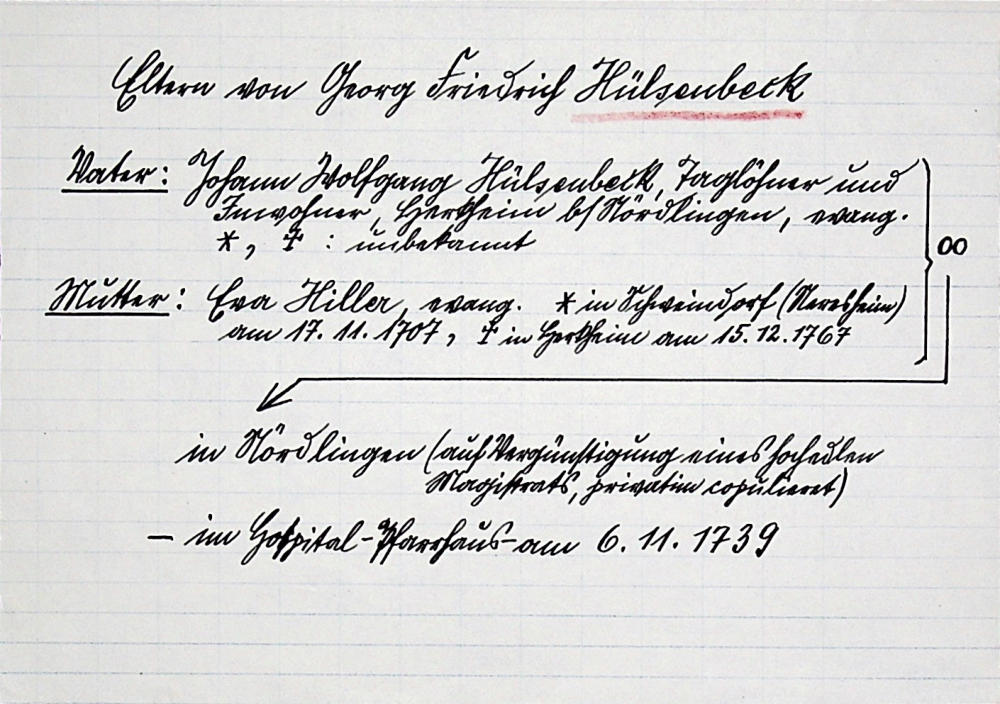 Eltern von Georg Friedrich Hülsenbeck
Vater: Johann Wolfgang Hülsenbeck, Taglöhner und
Inwohner, Herkheim b/Nördlingen, evang.
*, ✝ : unbekannt
∞
Mutter: Eva Hiller, evang. * in Schweindorf (Neresheim)
am 17. 11. 1707, ✝ in Herkheim am 15. 12. 1767
in Nördlingen (auf Vergünstigung eines hochedlen
Magistrats, privatim copulieret)
– im Hospital-Pfarrhaus – am 6. 11. 1739